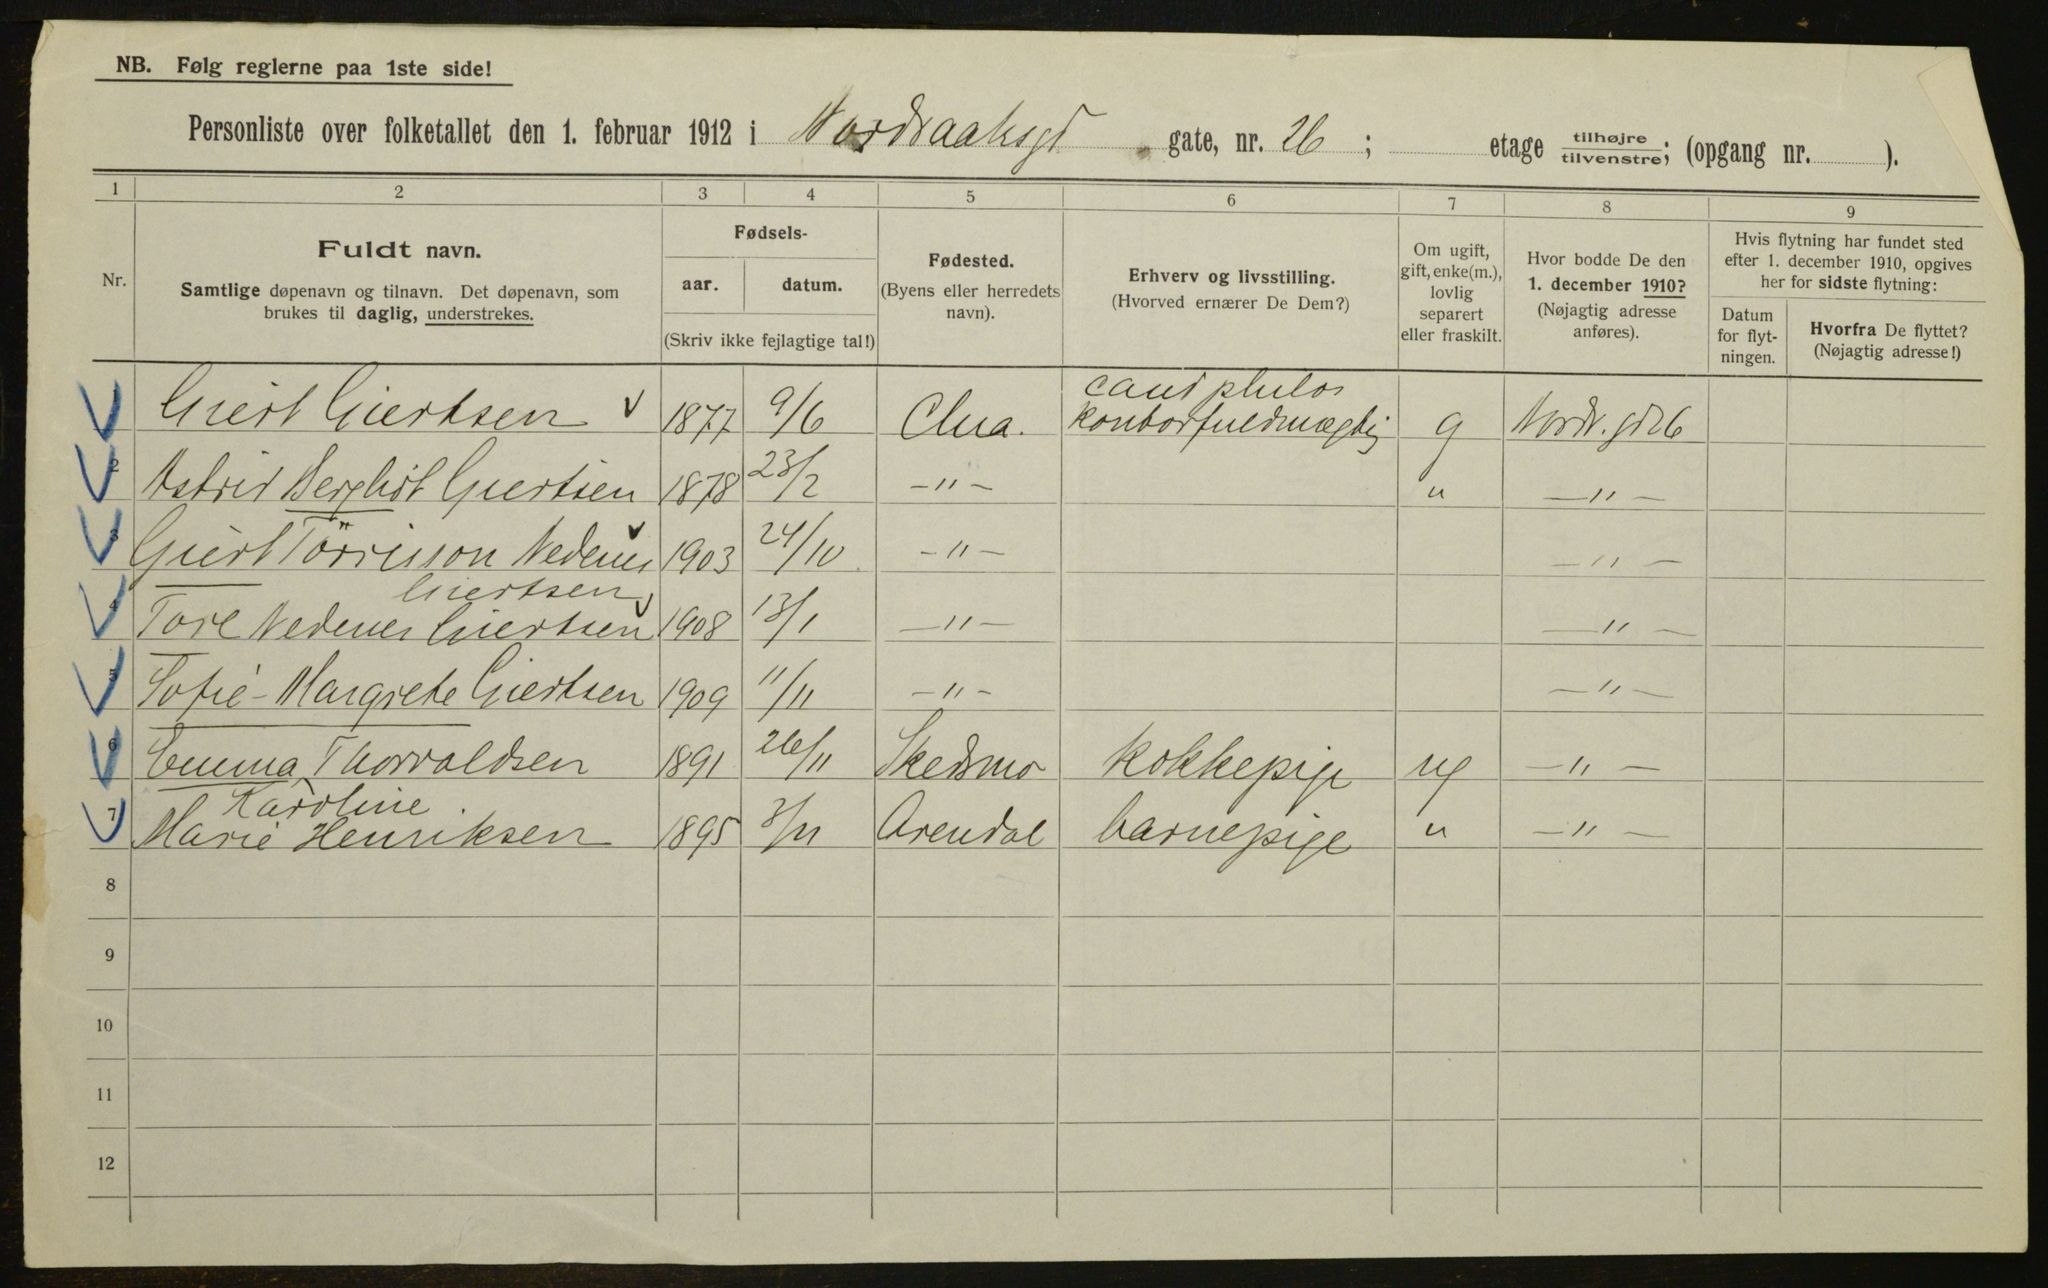 NB. Følg reglerne paa 1ste side!
Personliste over folketallet den 1. februar 1912 i Nordraaksgd gate, nr. 26 ; etage tilhøjre/tilvenstre; (opgang nr. ).
1 2 3 4 5 6 7 8 9
Nr.
Fuldt navn.
Samtlige døpenavn og tilnavn. Det døpenavn, som
brukes til daglig, understrekes.
Fødsels-
aar. datum.
(Skriv ikke fejlagtige tal!)
Fødested.
(Byens eller herredets
navn).
Erhverv og livsstilling.
(Hvorved ernærer De Dem?)
Om ugift,
gift, enke(m.),
lovlig
separert
eller fraskilt.
Hvor bodde De den
1. december 1910?
(Nøjagtig adresse
anføres).
Hvis flytning har fundet sted
efter 1. december 1910, opgives
her for sidste flytning:
Datum
for flyt-
ningen.
Hvorfra De flyttet?
(Nøjagtig adresse!)
cand philos
Giert Giertsen 1877 9/6 Chra. kontorfuldmægtig g Nordr. gd 26
2 Astrid Bergliot Giertsen 1878 23/2 —"— " —"—
3 Giert Törrisson Nedenes 1903 24/10 —"— —"—
Giertsen
4 Tore Nedenes Giertsen 1908 13/1 —"— —"—
5 Sofie-Margrete Giertsen 1909 11/11 —"— —"—
6 Emma Thorvaldsen 1891 26/11 Skedsmo kokkepige ug —"—
Karoline
7 Marie Henriksen 1895 3/11 Arendal barnepige " —"—
8
9
10
11
12